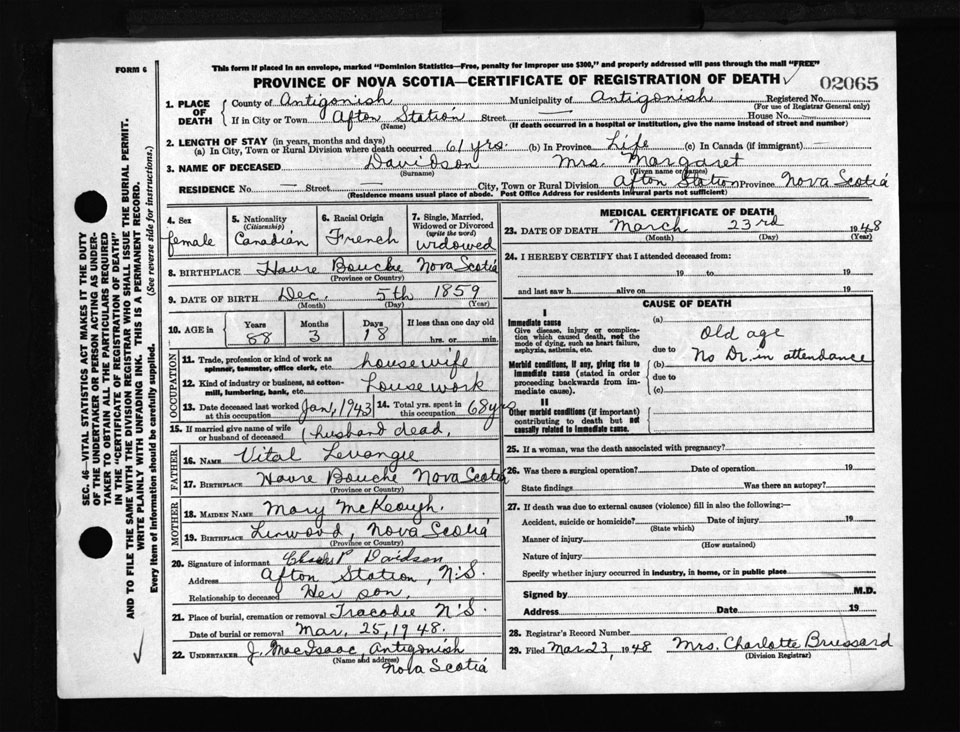 This form if placed in an envelope, marked "Dominion Statistics—Free, penalty for improper use $300," and properly addressed will pass through the mail "FREE"
FORM 6
PROVINCE OF NOVA SCOTIA—CERTIFICATE OF REGISTRATION OF DEATH
02065
1. PLACE OF DEATH County of Antigonish Municipality of Antigonish Registered No.
(For use of Registrar General only)
If in City or Town Afton Station Street — House No. —
(Name) (If death occurred in a hospital or institution, give the name instead of street and number)
2. LENGTH OF STAY (in years, months and days)
(a) In City, Town or Rural Division where death occurred 61 yrs. (b) In Province Life (c) In Canada (if immigrant) —
3. NAME OF DECEASED Davidson Mrs. Margaret
(Surname) (Given name or names)
RESIDENCE No. — Street — City, Town or Rural Division Afton Station Province Nova Scotia
(Residence means usual place of abode. Post Office Address for residents in rural parts not sufficient)
4. Sex female
5. Nationality (Citizenship) Canadian
6. Racial Origin French
7. Single, Married, Widowed or Divorced (write the word) widowed
8. BIRTHPLACE Havre Bouche Nova Scotia
(Province or Country)
9. DATE OF BIRTH Dec. 5th 1859
(Month) (Day) (Year)
10. AGE in Years Months Days If less than one day old
88 3 18 hrs. or min.
OCCUPATION
11. Trade, profession or kind of work as spinner, teamster, office clerk, etc. housewife
12. Kind of industry or business, as cotton-mill, lumbering, bank, etc. House work
13. Date deceased last worked at this occupation Jan, 1943 14. Total yrs. spent in this occupation 68 yrs
15. If married give name of wife or husband of deceased (husband dead.
FATHER
16. NAME Vital Levangie
17. BIRTHPLACE Havre Bouche Nova Scotia
(Province or Country)
MOTHER
18. MAIDEN NAME Mary McKeough.
19. BIRTHPLACE Linwood, Nova Scotia
(Province or Country)
20. Signature of informant Charles P. Davidson
Address Afton Station, N.S.
Relationship to deceased Her son.
21. Place of burial, cremation or removal Tracadie N.S.
Date of burial or removal Mar, 25, 1948.
22. UNDERTAKER J. MacIsaac, Antigonish
(Name and address)
Nova Scotia
MEDICAL CERTIFICATE OF DEATH
23. DATE OF DEATH March 23rd 1948
(Month) (Day) (Year)
24. I HEREBY CERTIFY that I attended deceased from:
19 to 19
and last saw h alive on 19
CAUSE OF DEATH
I
Immediate cause
Give disease, injury or complication which caused death, not the mode of dying, such as heart failure, asphyxia, asthenia, etc.
(a) Old age
due to No Dr. in attendance
Morbid conditions, if any, giving rise to immediate cause (stated in order proceeding backwards from immediate cause).
(b)
due to
(c)
II
Other morbid conditions (if important) contributing to death but not causally related to immediate cause.
25. If a woman, was the death associated with pregnancy?
26. Was there a surgical operation? Date of operation 19
State findings Was there an autopsy?
27. If death was due to external causes (violence) fill in also the following:—
Accident, suicide or homicide? Date of injury 19
(State which)
Manner of injury
(How sustained)
Nature of injury
Specify whether injury occurred in industry, in home, or in public place
Signed by M.D.
Address Date 19
28. Registrar's Record Number
29. Filed Mar 23, 1948 Mrs. Charlotte Brussard
(Division Registrar)
SEC. 46—VITAL STATISTICS ACT MAKES IT THE DUTY
OF THE UNDERTAKER OR PERSON ACTING AS UNDER-
TAKER TO OBTAIN ALL THE PARTICULARS REQUIRED
IN THE "CERTIFICATE OF REGISTRATION OF DEATH"
AND TO FILE THE SAME WITH THE DIVISION REGISTRAR WHO SHALL ISSUE THE BURIAL PERMIT.
WRITE PLAINLY WITH UNFADING INK. THIS IS A PERMANENT RECORD.
Every item of information should be carefully supplied. (See reverse side for instructions.)